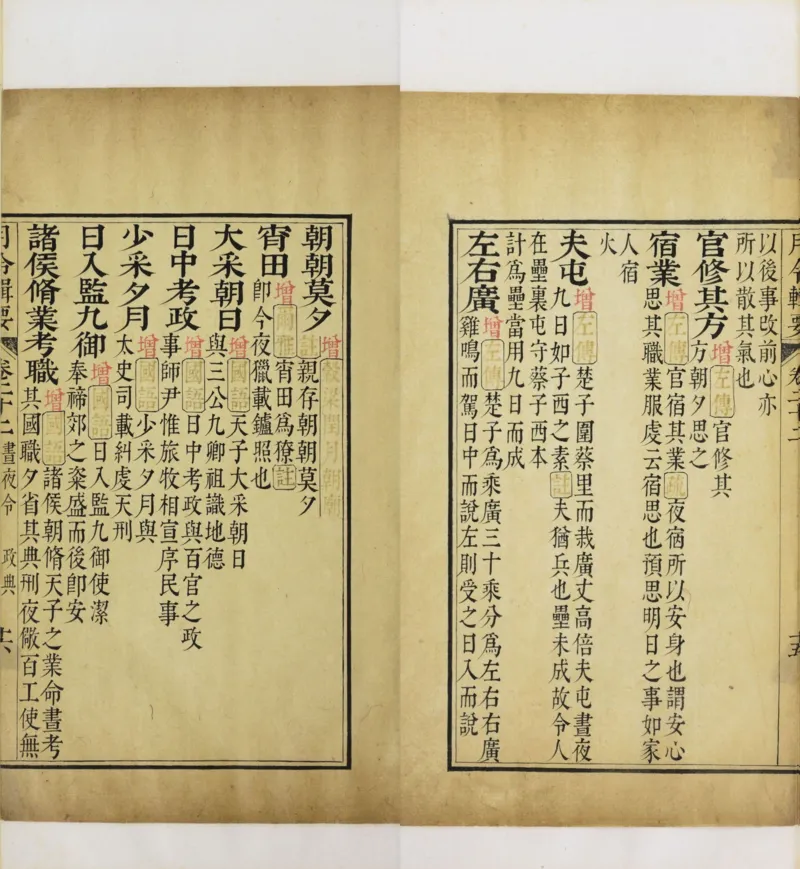 月令輯要 卷二十二 十五
以後事改前心亦
所以散其氣也
官修其方 增 左傳 官修其
方朝夕思之
宿業 增 左傳 官宿其業 疏 夜宿所以安身也謂安心
思其職業服虔云宿思也預思明日之事如家
人宿
火
夫屯 增 左傳 楚子圍蔡里而栽廣丈高倍夫屯晝夜
九日如子西之素 註 夫猶兵也壘未成故令人
在壘裏屯守蔡子西本
計爲壘當用九日而成
左右廣 增 左傳 楚子爲乘廣三十乘分爲左右右廣
雞鳴而駕日中而說左則受之日入而說
朝朝莫夕 增
親存朝朝莫夕
宵田 增 爾雅 宵田爲獠 註
卽今夜獵載鑪照也
大采朝日 增 國語 天子大采朝日
與三公九卿祖識地德
日中考政 增 國語 日中考政與百官之政
事師尹惟旅牧相宣序民事
少采夕月 增 國語 少采夕月與
太史司載糾虔天刑
日入監九御 增 國語 日入監九御使潔
奉禘郊之粢盛而後卽安
諸侯脩業考職 增 國語 諸侯朝脩天子之業命晝考
其國職夕省其典刑夜儆百工使無
月令輯要 卷二十二 晝夜令 政典 十六